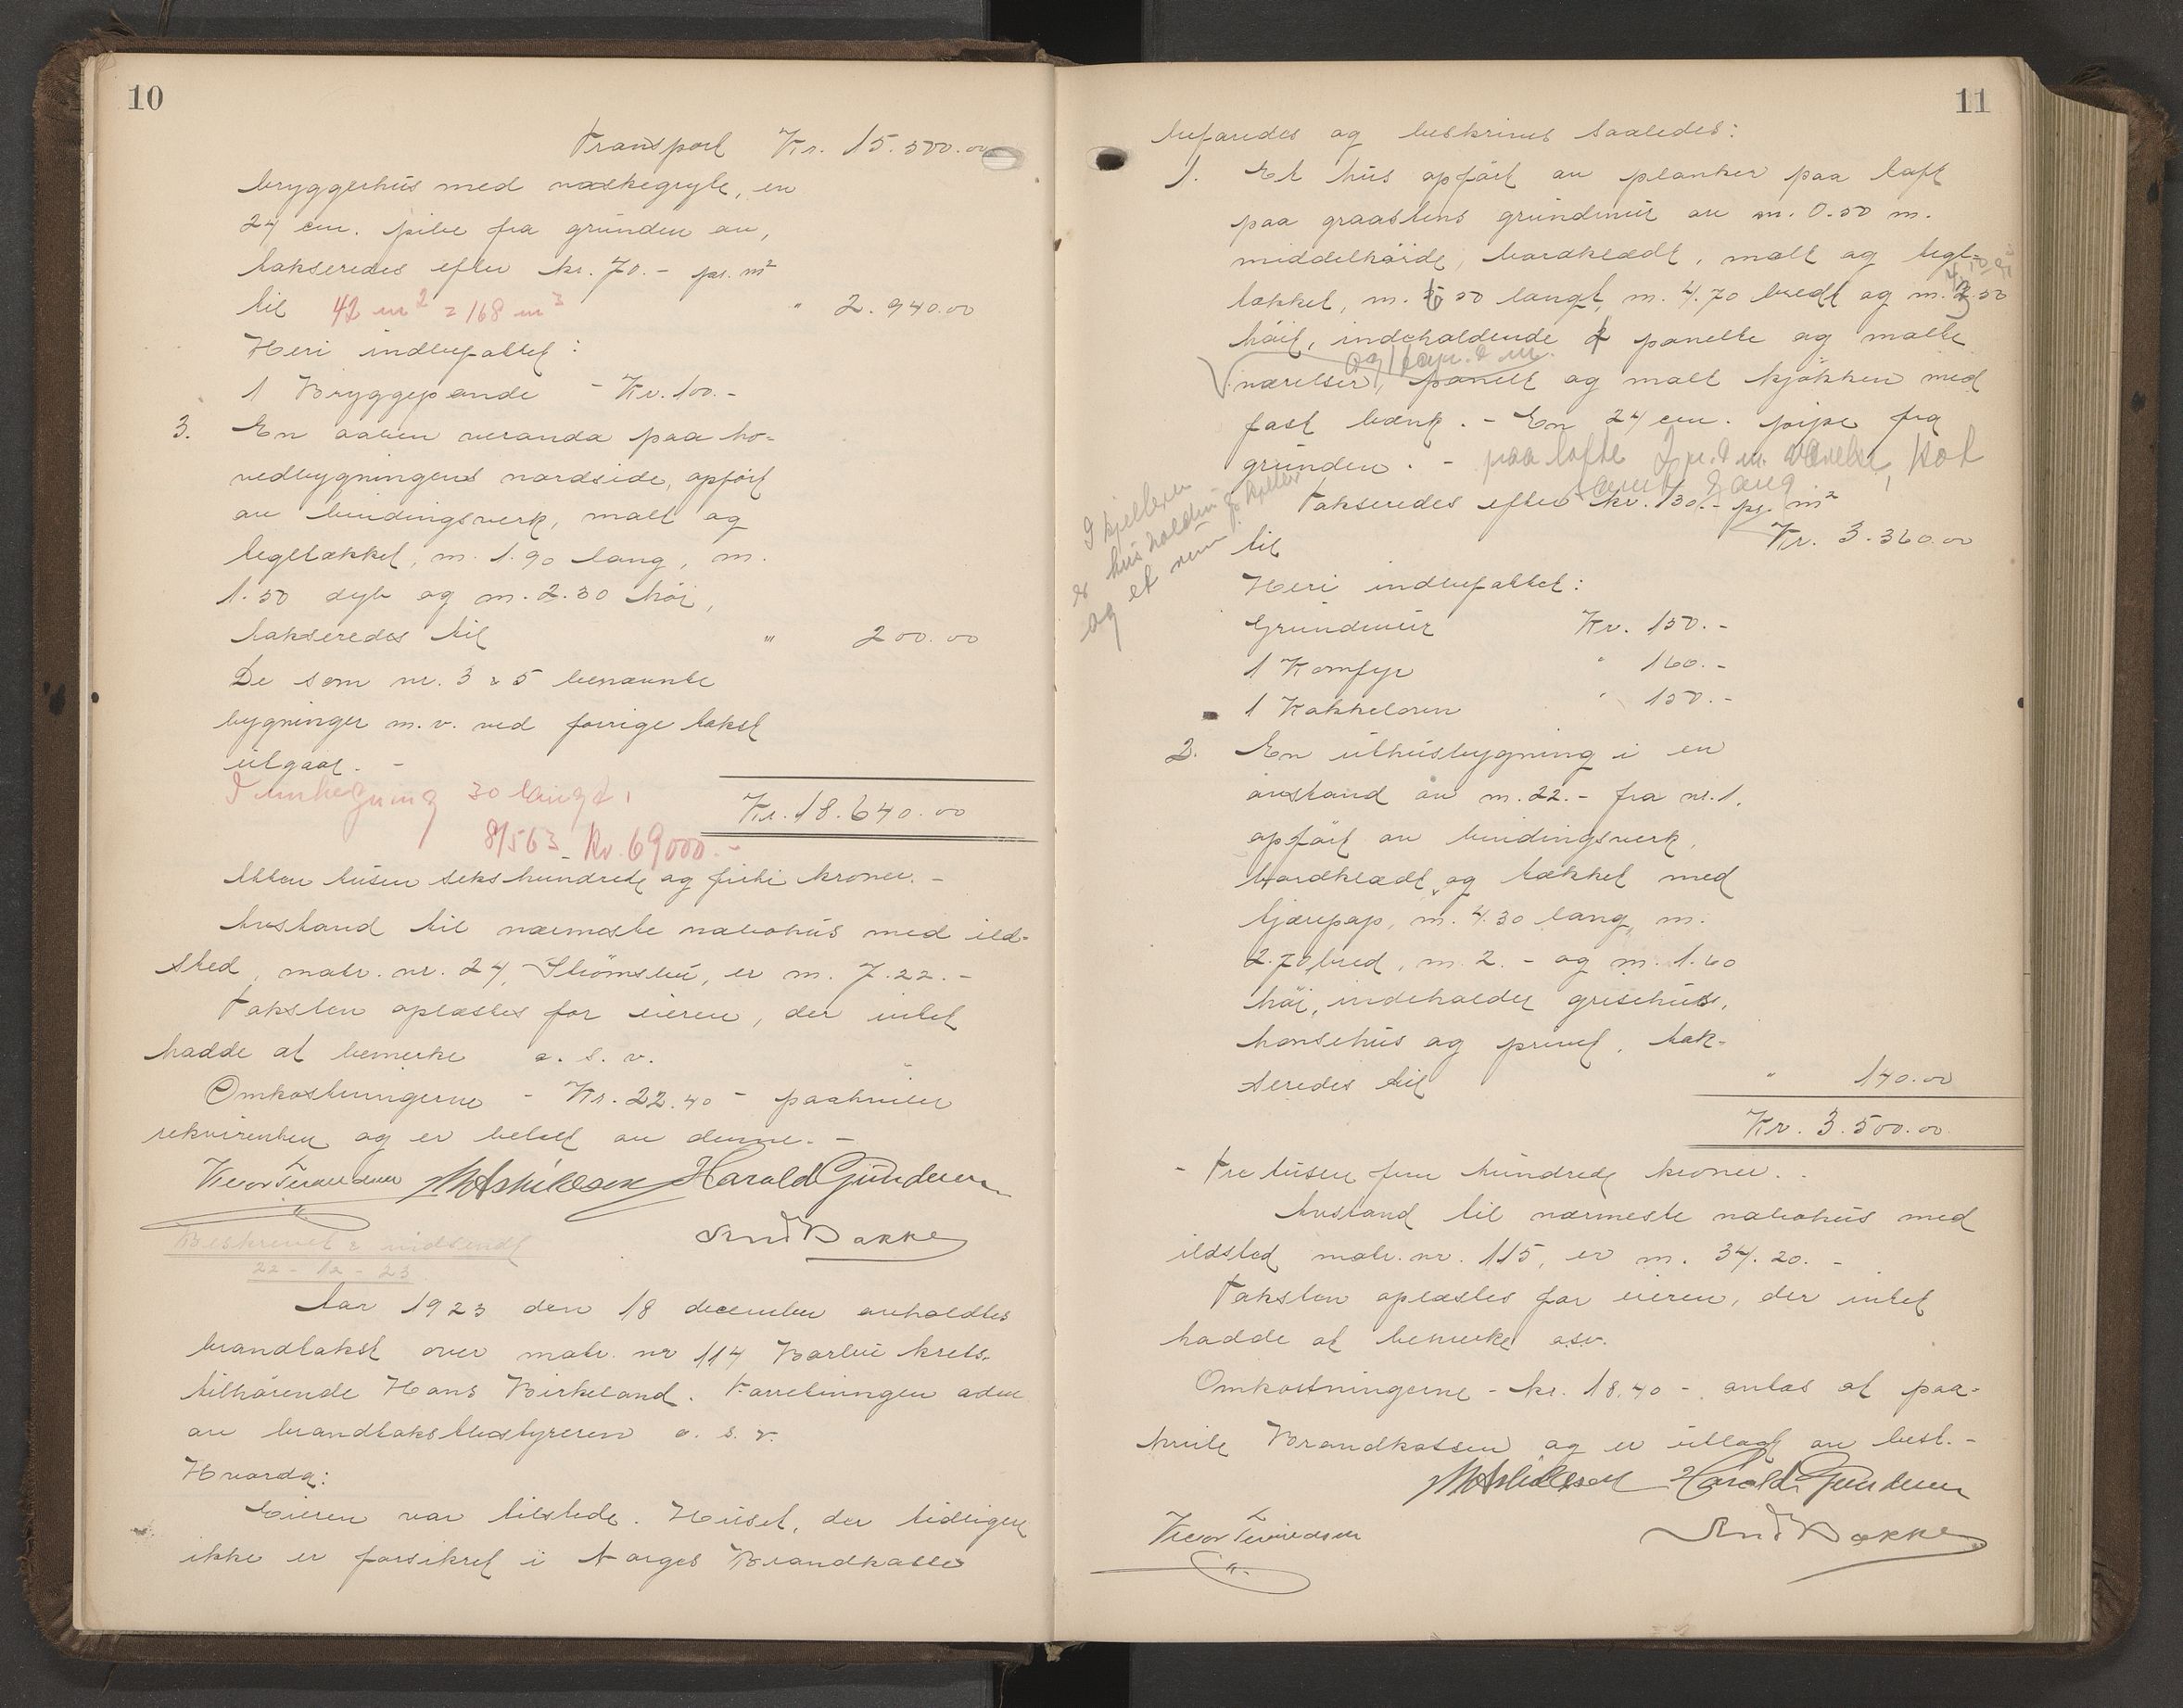 10
Transport Kr. 15.500.00
bryggerhus med vaskegryte, en
24 cm. pibe fra grunden av,
takseredes efter kr. 70.- pr. m²
til 42 m² = 168 m³ " 2.940.00
Heri indbefattet:
1 Bryggepande - Kr. 100.-
3. En aaben veranda paa ho-
vedbygningens nordside, opført
av bindingsverk, malt og
tegltækket, m. 1.90 lang, m.
1.50 dyb og m. 2.30 høi,
takseredes til " 200.00
De som nr. 3 & 5 benævnte
bygninger m.v. ved forrige takst
utgaar. -
30 langt,
Kr. 18.640.00
8/563 Kr. 69000.-
Atten tusen sekshundrede og firti kroner. -
Avstand til nærmeste nabohus med ild-
sted, matr. nr. 24, Strømsbu, er m. 7.22.-
Taksten oplæstes for eieren, der intet
hadde at bemerke o. s. v.
Omkostningerne - Kr. 22.40 - paahviler
rekvirenten og er betalt av denne. -
Harald Gundersen
Bakke
Beskrevet & indsendt
22-12-23
Aar 1923 den 18 december avholdtes
brandtakst over matr. nr 114 Barbu krets,
tilhørende Hans Birkeland. Forretningen adm
av brandtakstbestyreren o. s. v.
Hvorda:
Eieren var tilstede. Huset, der tidligere
ikke er forsikret i Norges Brandkasse
11
befaredes og beskrives saaledes:
1. Et hus opført av planker paa loft
paa graastens grundmur av m. 0.50 m.
middelhøide, bordklædt, malt og tegl-
tækket, m. 5.50 langt, m. 4.70 bredt og m. 3.50
høit, indeholdende 2 panelte og malte
værelser, panelt og malt kjøkken med
fast bænk. - En 24 cm. pipe fra
grunden. - paa lofte 2 p. & m. værelse, kot
samt gang
I kjelleren
er husholdnings kjeller
og et rum
Takseredes efter kr. 130.- pr. m²
til Kr. 3.360.00
Heri indbefattet:
Grundmur Kr. 150.-
1 Komfyr " 160.-
1 Kakkelovn " 150.-
2. En uthusbygning i en
avstand av m. 22.- fra nr. 1,
opført av bindingsverk,
bordklædt og tækket med
tjærepap, m. 4.30 lang, m.
2.70 bred, m. 2.- og m. 1.60
høi, indeholder grisehus,
hønsehus og privet, tak-
seredes til " 140.00
Kr. 3.500.00
- Tre tusen fem hundrede kroner. -
Avstand til nærmeste nabohus med
ildsted matr. nr. 115, er m. 34.20. -
Taksten oplæstes for eieren, der intet
hadde at bemerke osv.
Omkostningerne - kr. 18.40 -, antas at paa-
hvile Brandkassen og er utlagt av best. -
Harald Gundersen
Bakke